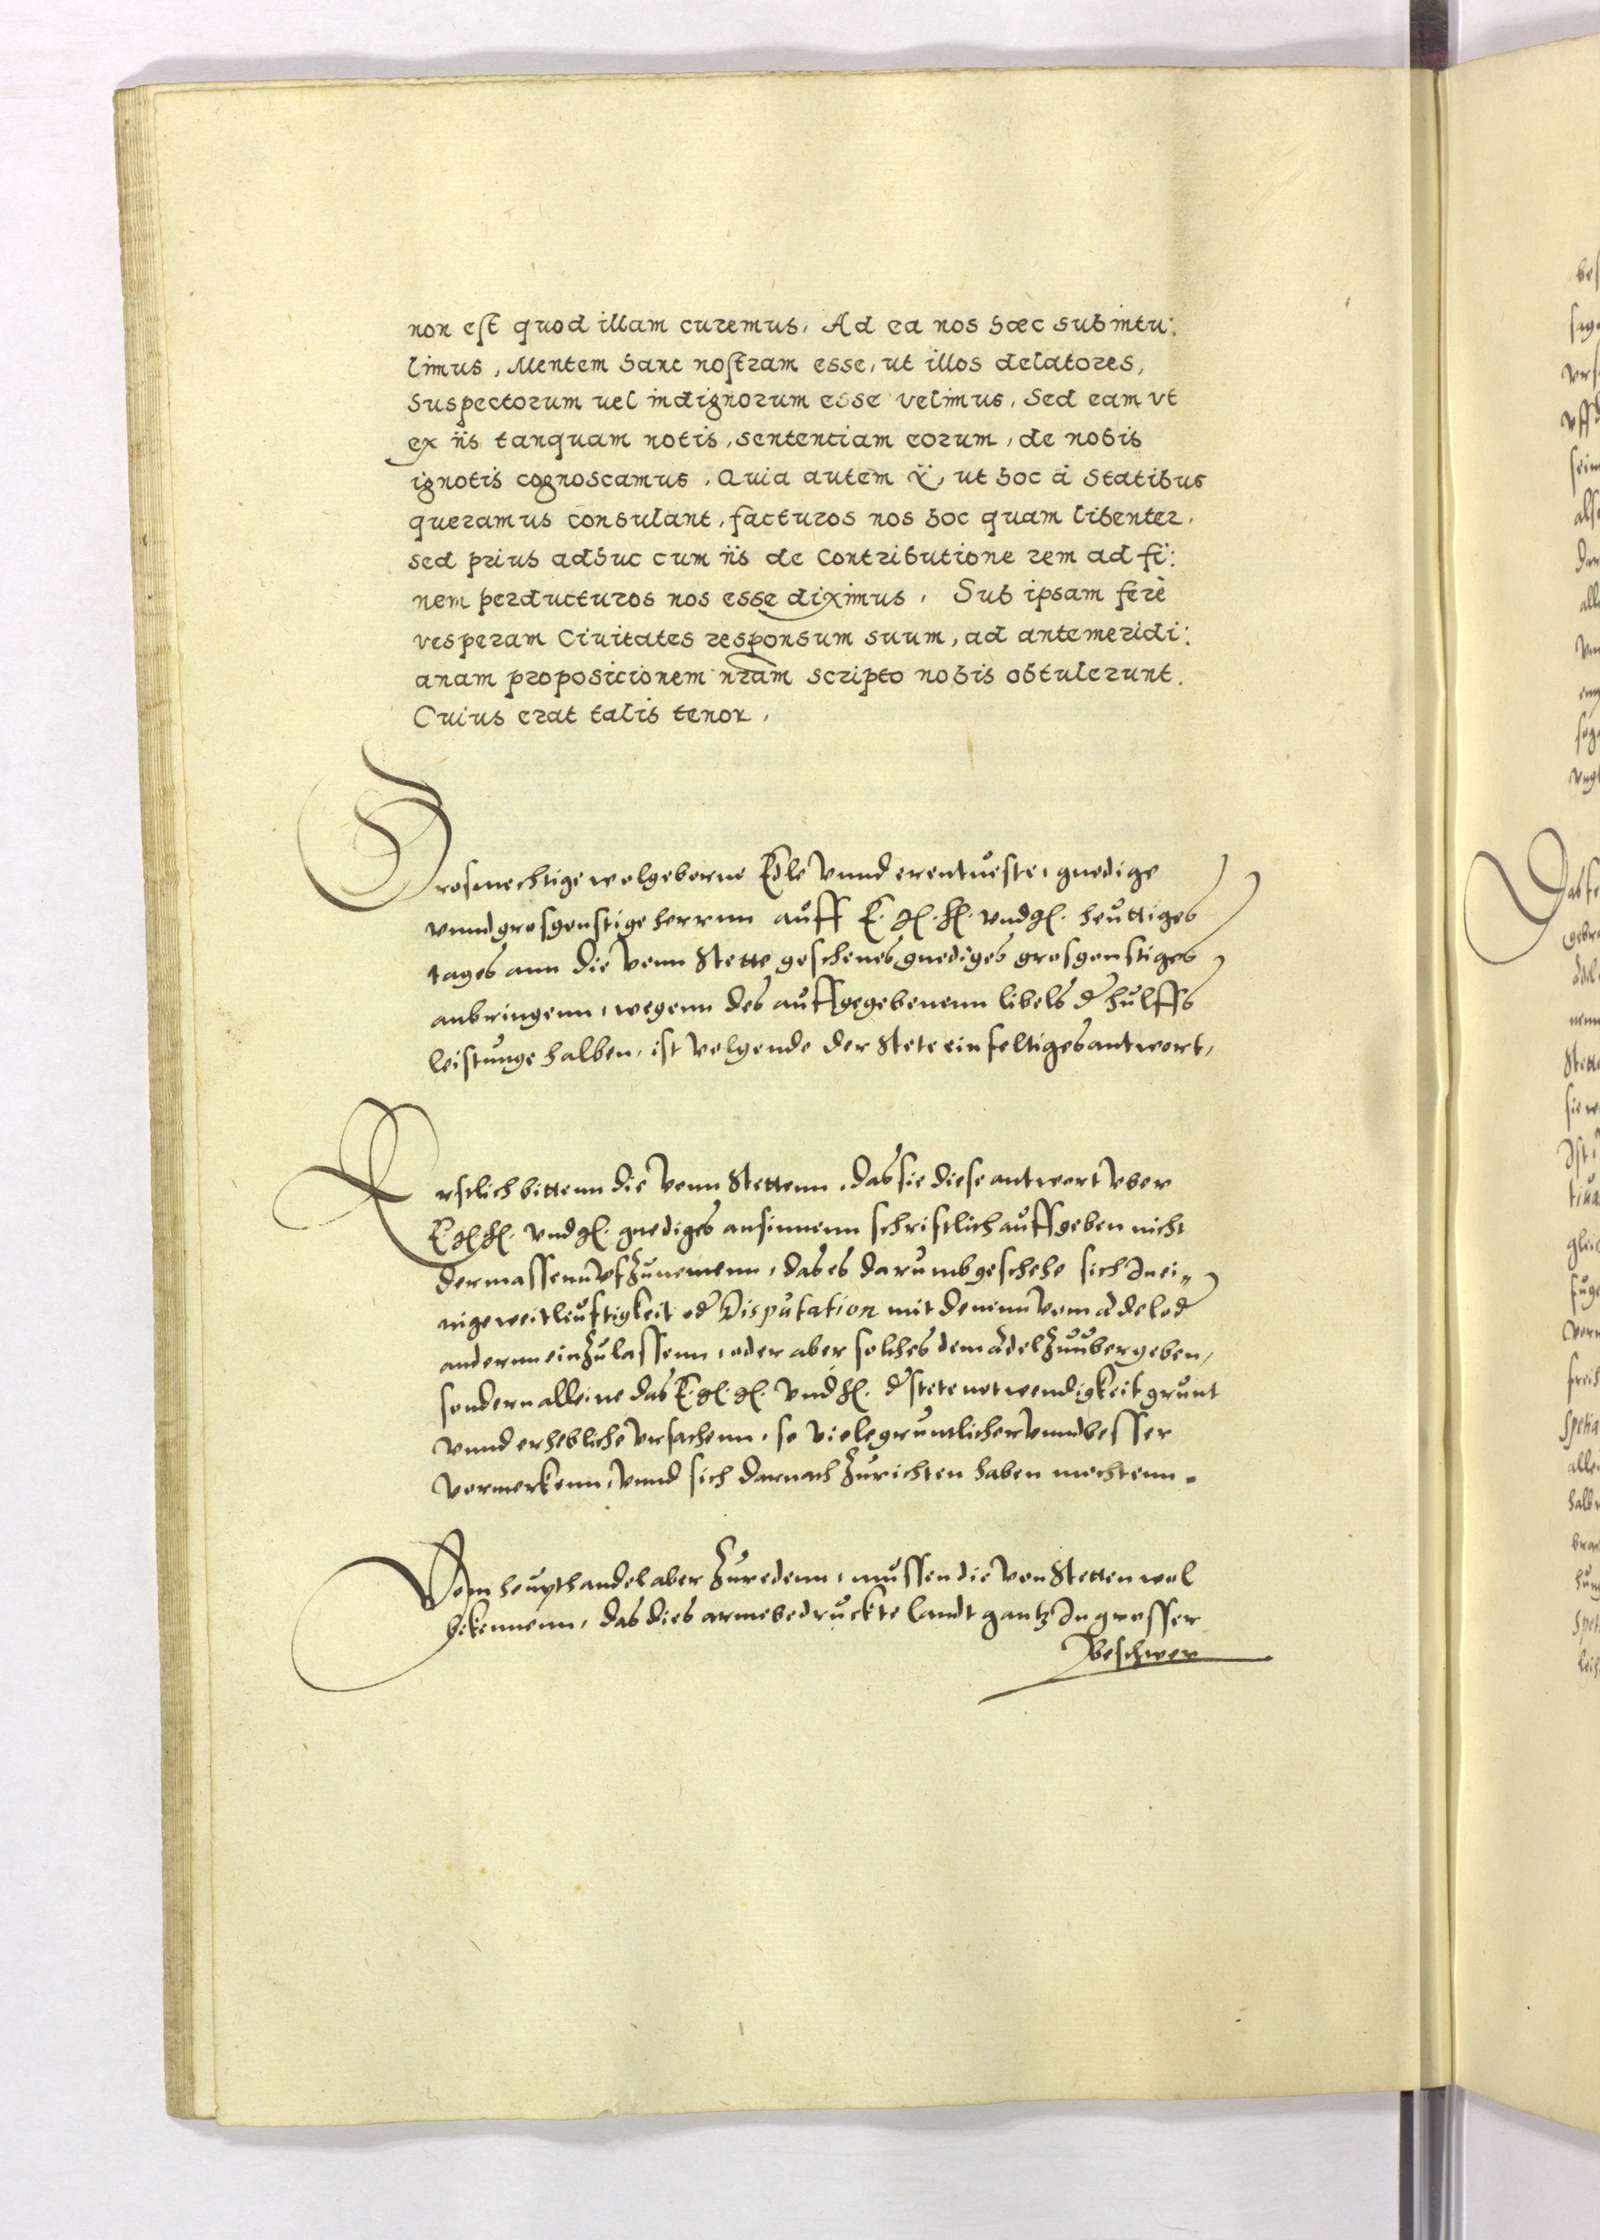 non est quod illam curemus, Ad ea nos hæc submtu:
limus, Mentem hanc nostram esse, ut illos delatores,
Suspectorum uel indignorum esse velimus, Sed eam vt
ex iis tanquam notis, sententiam eorum, de nobis
ignotis cognoscamus, Quia autem ut hoc à Statibus
queramus consulant, facturos nos hoc quam libenter,
sed prius adhuc cum iis de Contributione rem ad fi:
nem perducturos nos esse diximus, Sub ipsam ferè
vesperam Ciuitates responsum suum, ad antemeridi:
anam proposicionem nram scripto nobis obtulerunt.
Cuius erat talis tenor,
Grosmechtige wolgeborne Edle vnnd erentueste, gnedige
vnnd grosgonstige herrnn auff E. G. H. vnd G. heuttiges
tages ann die vonn Stette geschenes gnediges grosgonstiges
anbringenn, wegenn des auffgegebenenn libels d hulffs
leistunge halben, ist volgende der Stete einfeltiges antwort,
Erstlich bittenn die vonn Stettenn, das sie diese antwort vber
E. G. H. vnd G. gnediges ansinnenn schriftlich auffgeben nicht
dermassenn vfzunemenn, das es darumb geschehe sich Inei„
nige weitleuftigkeit od Disputation mit denenn vom adel od
andernn einzulassenn, oder aber solches dem adel zuubergeben,
sondern alleine das E. G. G. vnd H. d stete notwendigkeit grunt
vnnd erhebliche vrsachenn, so viele gruntlicher vnnd besser
vormerkenn, vnnd sich darnach zurichten haben mochtenn.
Vom heupthandel aber zuredenn, mussen die von Stetten wol
bekennenn, das dies arme bedruckte landt gantz In grosser
Beschwer